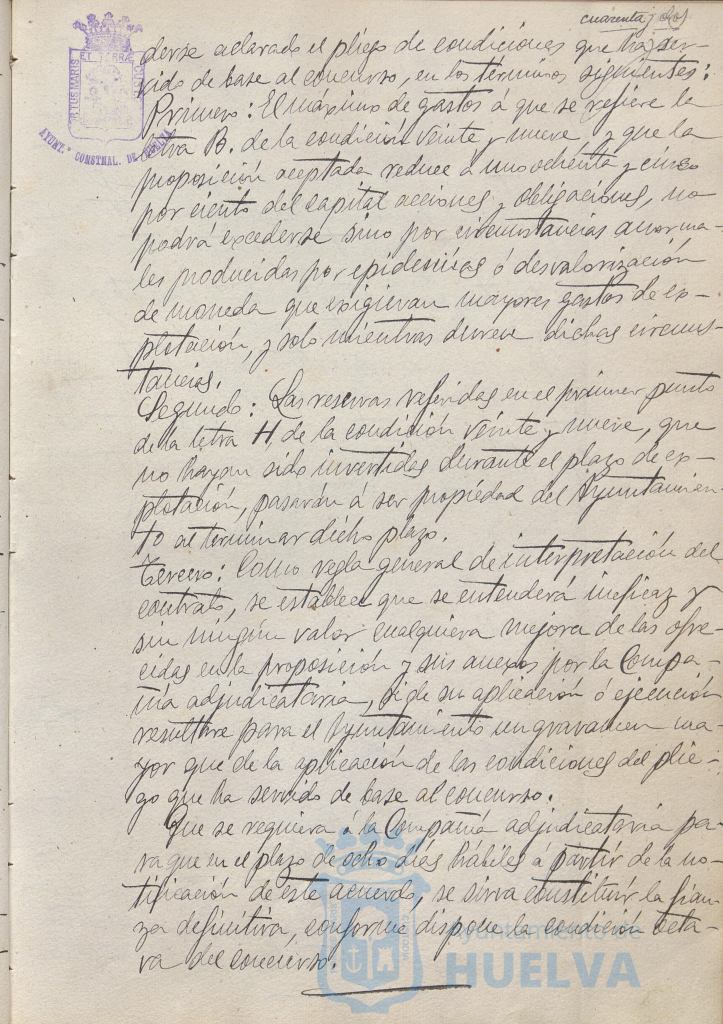 cuarenta y dos
derse aclarado el pliego de condiciones que ha ser-
vido de base al concurso, en los términos siguientes:
Primero: El máximo de gastos á que se refiere la
letra B. de la condición veinte y nueve y que la
proposición aceptada reduce a un ochenta y cinco
por ciento del capital acciones y obligaciones, no
podrá excederse sino por circunstancias anorma-
les producidas por epidemias ó desvalorización
de moneda que exigieran mayores gastos de ex-
plotación, y solo mientras duren dichas circuns-
tancias.
Segundo: Las reservas referidas en el primer punto
de la letra H, de la condición veinte y nueve, que
no hayan sido invertidas durante el plazo de ex-
plotación, pasarán á ser propiedad del Ayuntamien-
to al terminar dicho plazo.
Tercero: Como regla general de interpretación del
contrato, se establece que se entenderá ineficaz y
sin ningún valor cualquiera mejora de las ofre-
cidas en la proposición y sus anexos por la Compa-
ñía adjudicataria, si de su aplicación ó ejecución
resultare para el Ayuntamiento un gravamen ma-
yor que de la aplicación de las condiciones del plie-
go que ha servido de base al concurso.
Que se requiera á la Compañía adjudicataria pa-
ra que en el plazo de ocho días hábiles á partir de la no-
tificación de este acuerdo, se sirva constituir la fian-
za definitiva, conforme dispone la condición octa-
va del concurso.
PORTUS MARIS ET TERRÆ CUSTODIA
AYUNT.º CONSTNAL. DE HUELVA
Ayuntamiento de
HUELVA